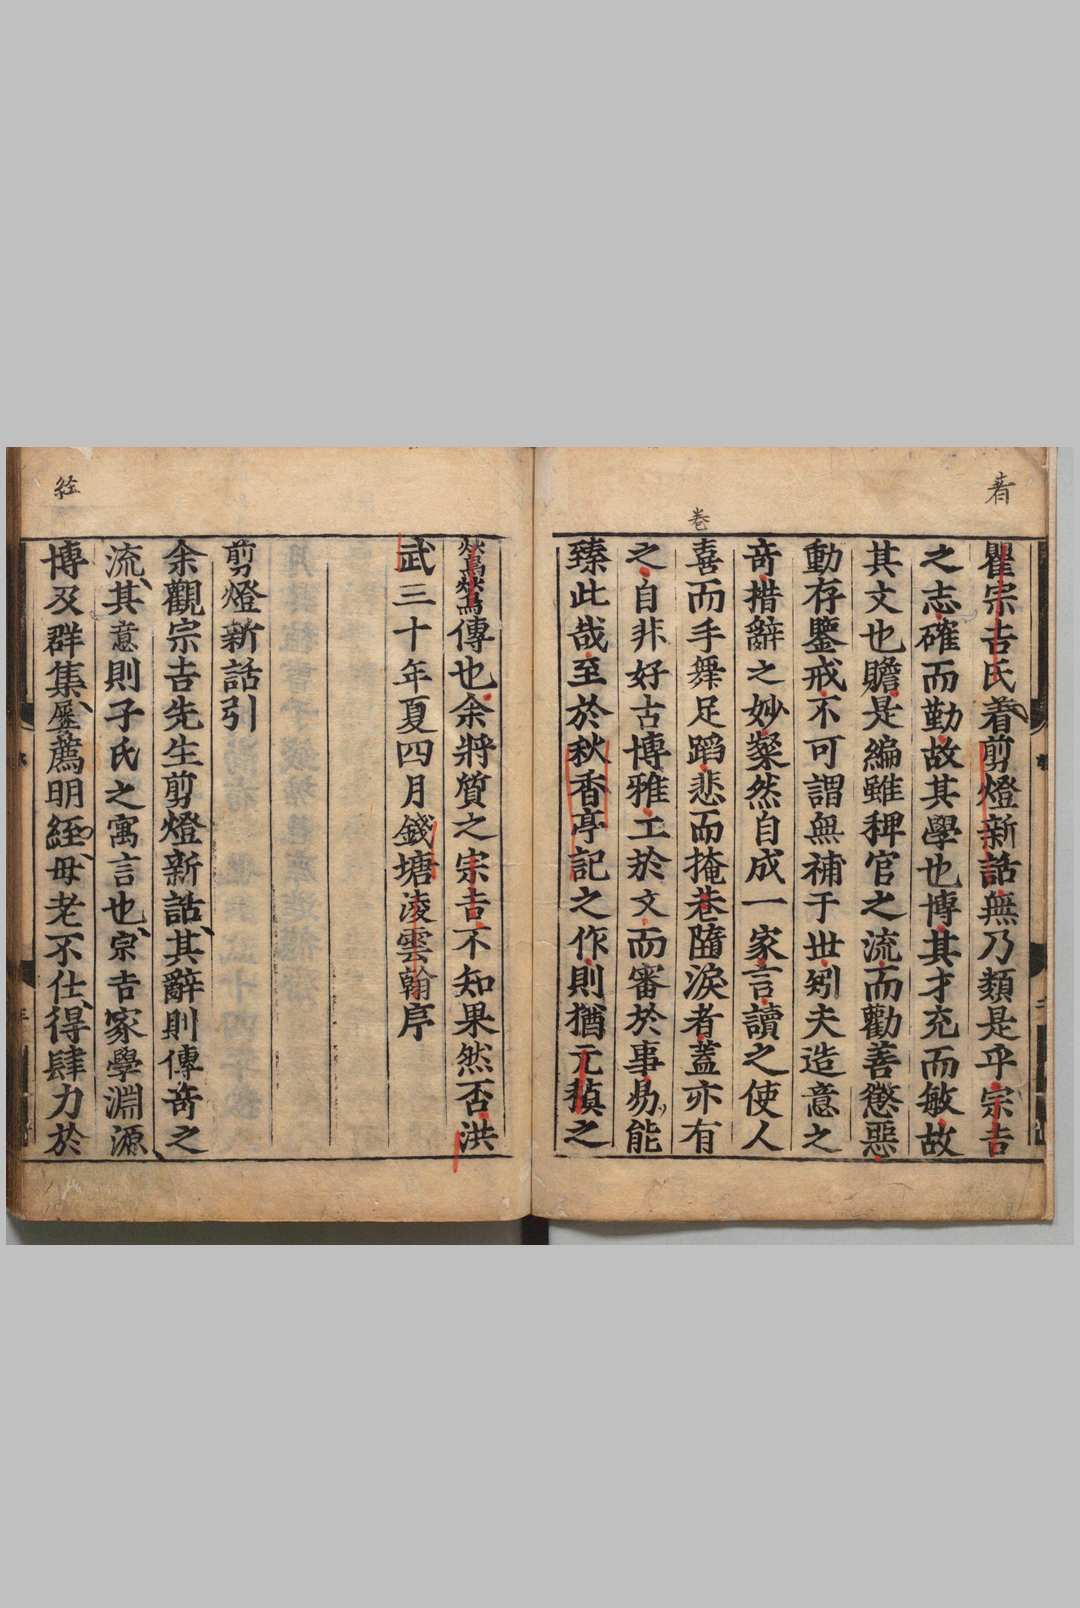 著
瞿宗吉氏着剪燈新話無乃類是乎宗吉
之志確而勤故其學也博其才充而敏故
其文也贍是編雖稗官之流而勸善懲惡
動存鑒戒不可謂無補于世矧夫造意之
奇措辭之妙粲然自成一家言讀之使人
卷
喜而手舞足蹈悲而掩巷隨淚者蓋亦有
之自非好古博雅工於文而審於事曷能
臻此哉至於秋香亭記之作則猶元稹之
鶯鶯傳也余將質之宗吉不知果然否洪
武三十年夏四月錢塘凌雲翰序
剪燈新話引
余觀宗吉先生剪燈新話其辭則傳奇之
流其意則子氏之寓言也宗吉家學淵源
経
博及群集屢薦明經母老不仕得肆力於